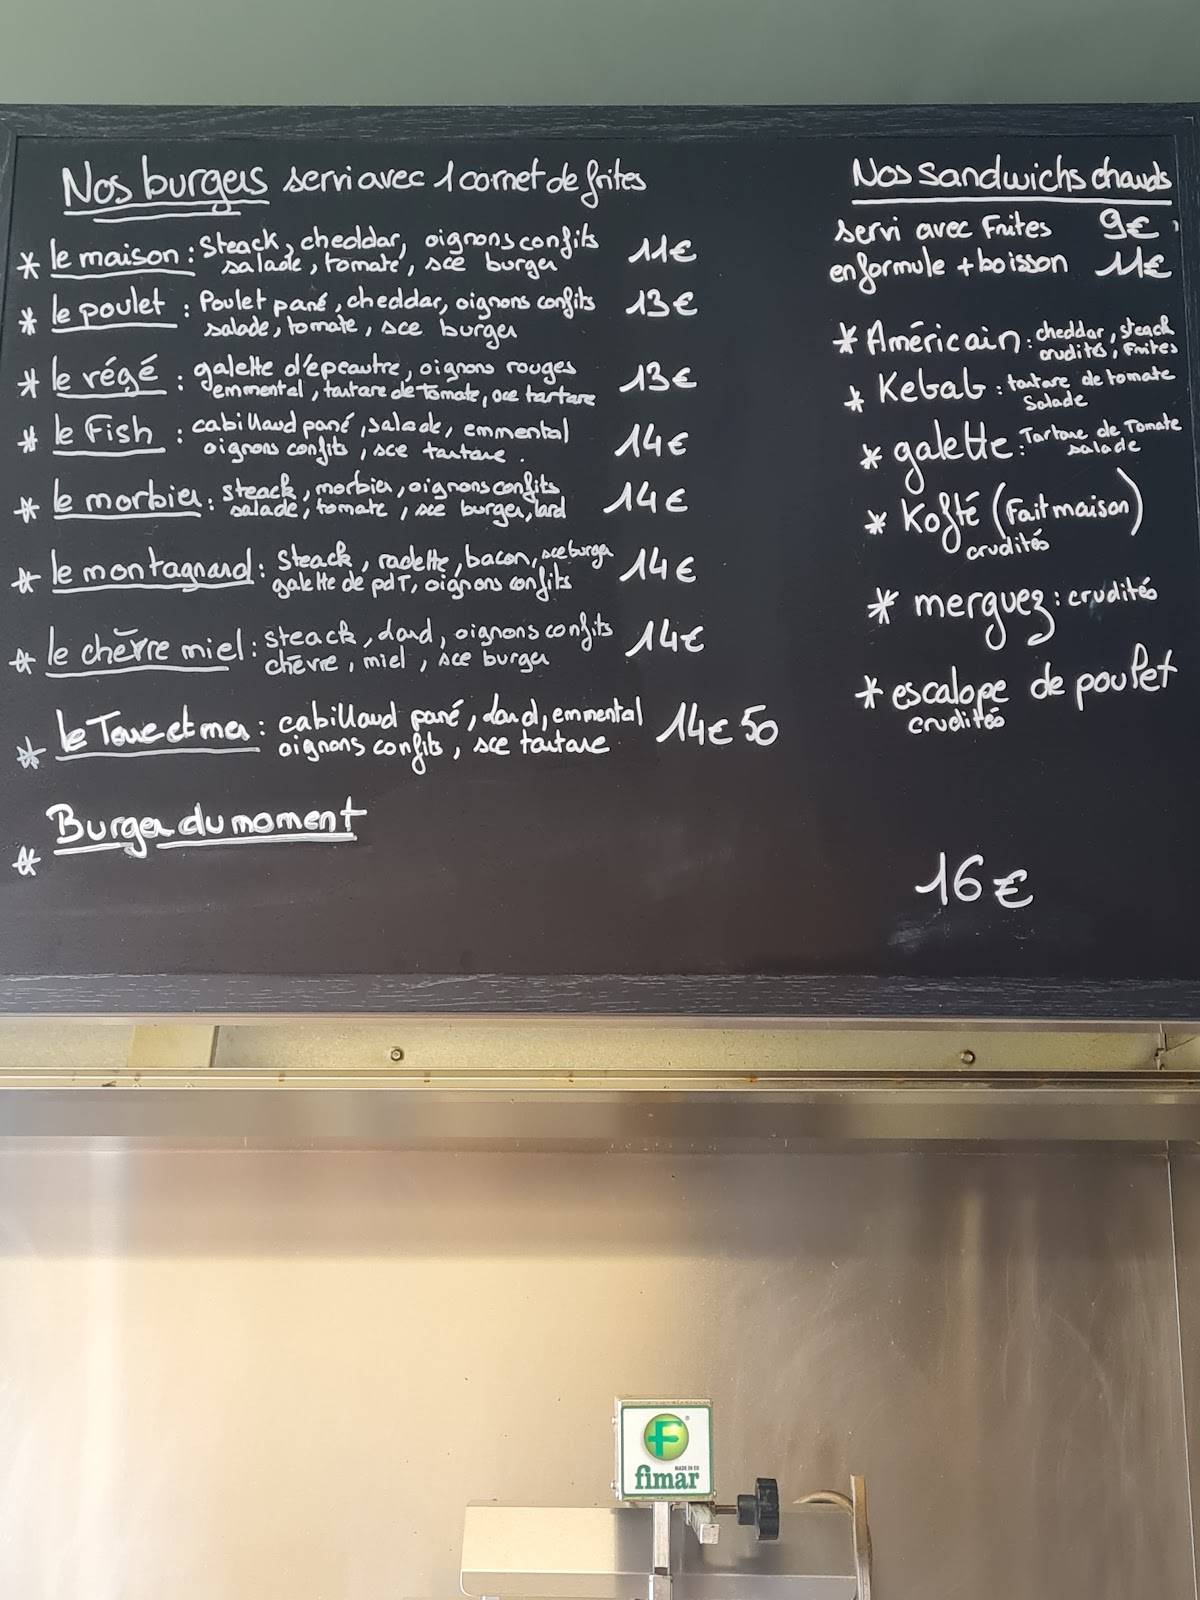 Nos burgers servi avec 1 cornet de frites
* le maison : Steack, cheddar, oignons confits 11€
salade, tomate, sce burger
* le poulet : Poulet pané, cheddar, oignons confits 13€
salade, tomate, sce burger
* le régé : galette d'epeautre, oignons rouges 13€
emmental, tartare de Tomate, sce tartare
* le Fish : cabillaud pané, salade, emmental 14€
oignons confits, sce tartare.
* le morbier : steack, morbier, oignons confits 14€
salade, tomate, sce burger, lard
* le montagnard : Steack, raclette, bacon, sce burger 14€
galette de pdT, oignons confits
* le chèvre miel : steack, lard, oignons confits 14€
chèvre, miel, sce burger
* le Terre et mer : cabillaud pané, lard, emmental 14€50
oignons confits, sce tartare
* Burger du moment
16€
Nos Sandwichs chauds
servi avec Frites 9€
en formule + boisson 11€
* Américain : cheddar, steack
crudités, Frites
* Kebab : tartare de tomate
Salade
* galette : Tartare de Tomate
salade
* Kofté (Fait maison)
crudités
* merguez : crudités
* escalope de poulet
crudités
F
MADE IN EU
fimar